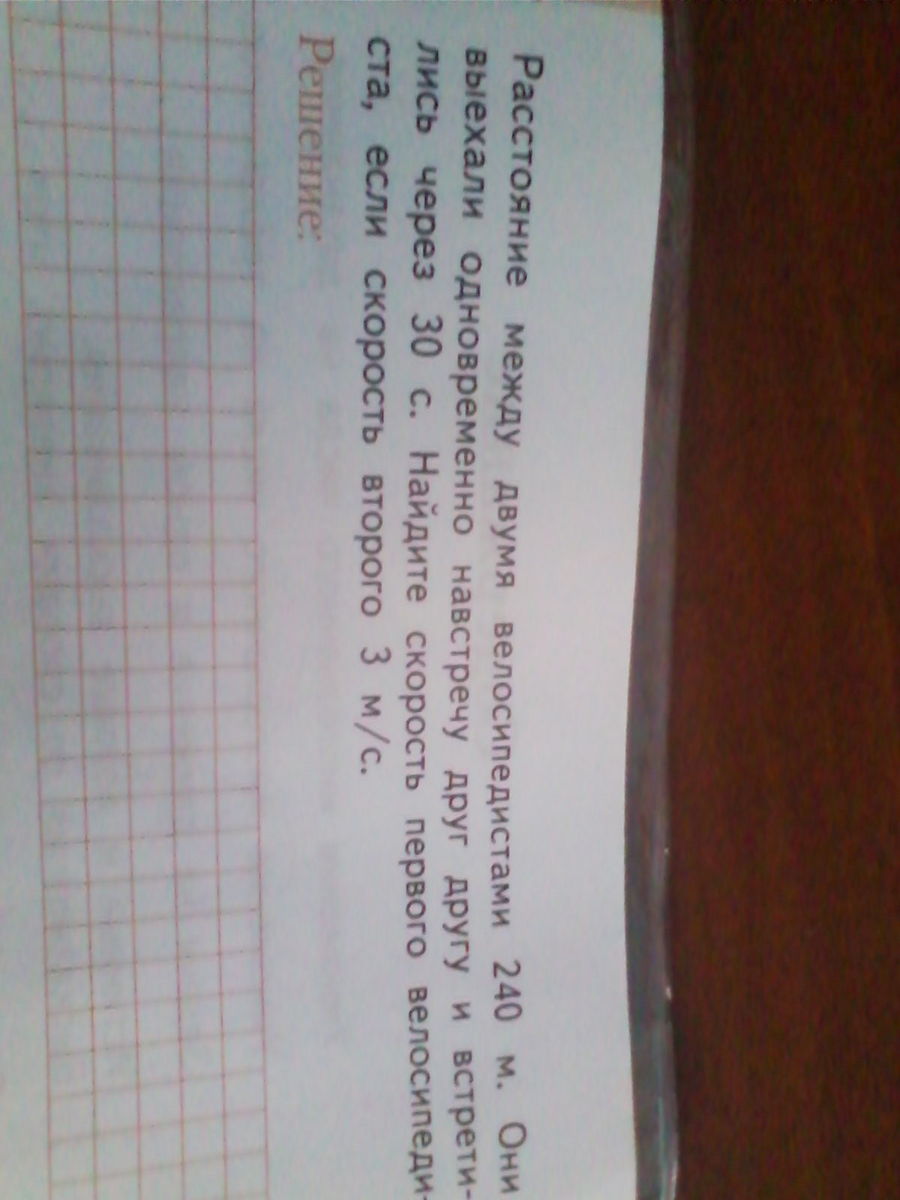 Расстояние между двумя велосипедистами 240 м. Они
выехали одновременно навстречу друг другу и встрети-
лись через 30 с. Найдите скорость первого велосипеди-
ста, если скорость второго 3 м/с.
Решение: